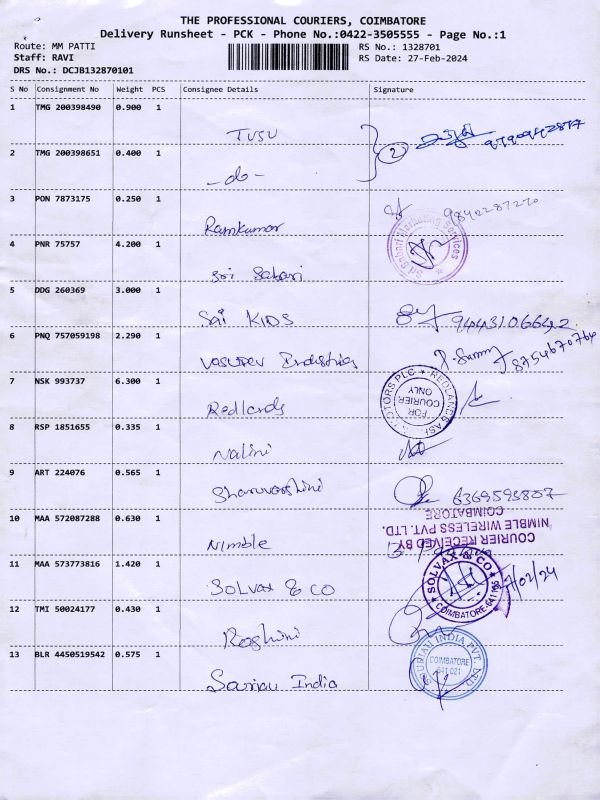 THE PROFESSIONAL COURIERS, COIMBATORE
Delivery Runsheet - PCK - Phone No.:0422-3505555 - Page No.:1
Route: MM PATTI
RS No.: 1328701
Staff: RAVI
RS Date: 27-Feb-2024
DRS No.: DCJB132870101
S No Consignment No Weight PCS Consignee Details Signature
1 TMG 200398490 0.900 1
TUSU
2
2 TMG 200398651 0.400 1
-do-
3 PON 7873175 0.250 1
Ramkumar
4 PNR 75757 4.200 1
Sri Sabari Marketing Services
Sri Sabari
5 DDG 260369 3.000 1
Sai KIDS 9443106642
6 PNQ 757059198 2.290 1
Vasudev Industries 8754670764
7 NSK 993737 6.300 1
FOR COURIER ONLY
Redlands
8 RSP 1851655 0.335 1
Nalini
9 ART 224076 0.565 1
6369593807
10 MAA 572087288 0.630 1
COURIER RECEIVED BY
NIMBLE WIRELESS PVT. LTD.
COIMBATORE
Nimble
11 MAA 573773816 1.420 1
SOLVAX & CO
COIMBATORE-641
SOLVAX & CO
12 TMI 50024177 0.430 1
Roghini
13 BLR 4450519542 0.575 1
SOURIAU INDIA PVT. LTD.
COIMBATORE
641 021
Souriau India